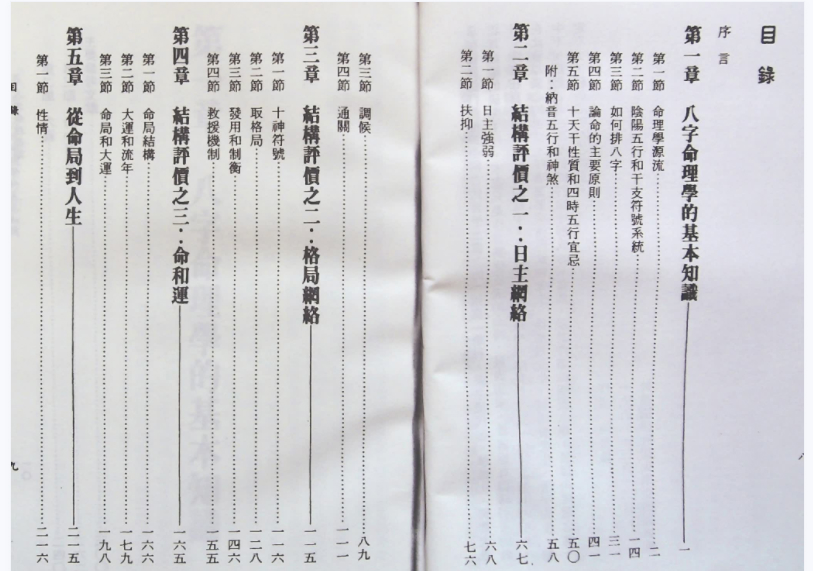 目錄
序言
第一章 八字命理學的基本知識 一
第一節 命理學源流 二
第二節 陰陽五行和干支符號系統 一四
第三節 如何排八字 三一
第四節 論命的主要原則 四一
第五節 十天干性質和四時五行宜忌 五〇
附：納音五行和神煞 五八
第二章 結構評價之一：日主網絡 六七
第一節 日主強弱 六八
第二節 扶抑 七六
第三節 調候 八九
第四節 通關 一一一
第三章 結構評價之二：格局網絡 一一五
第一節 十神符號 一一六
第二節 取格局 一二八
第三節 發用和制衡 一四六
第四節 救援機制 一五五
第四章 結構評價之三：命和運 一六五
第一節 命局結構 一六六
第二節 大運和流年 一七九
第三節 命局和大運 一九八
第五章 從命局到人生 二一五
第一節 性情 二一六
目錄
九